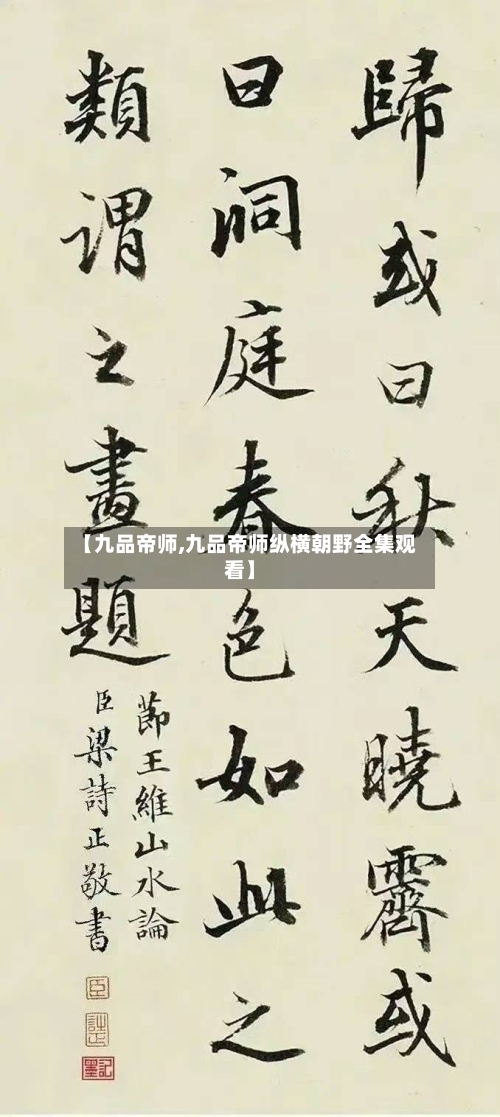 歸或曰秋天曉霽或
曰洞庭春色如此之
類謂之畫題
節王維山水論
臣梁詩正敬書
臣
詩正
【九品帝师,九品帝师纵横朝野全集观
看】